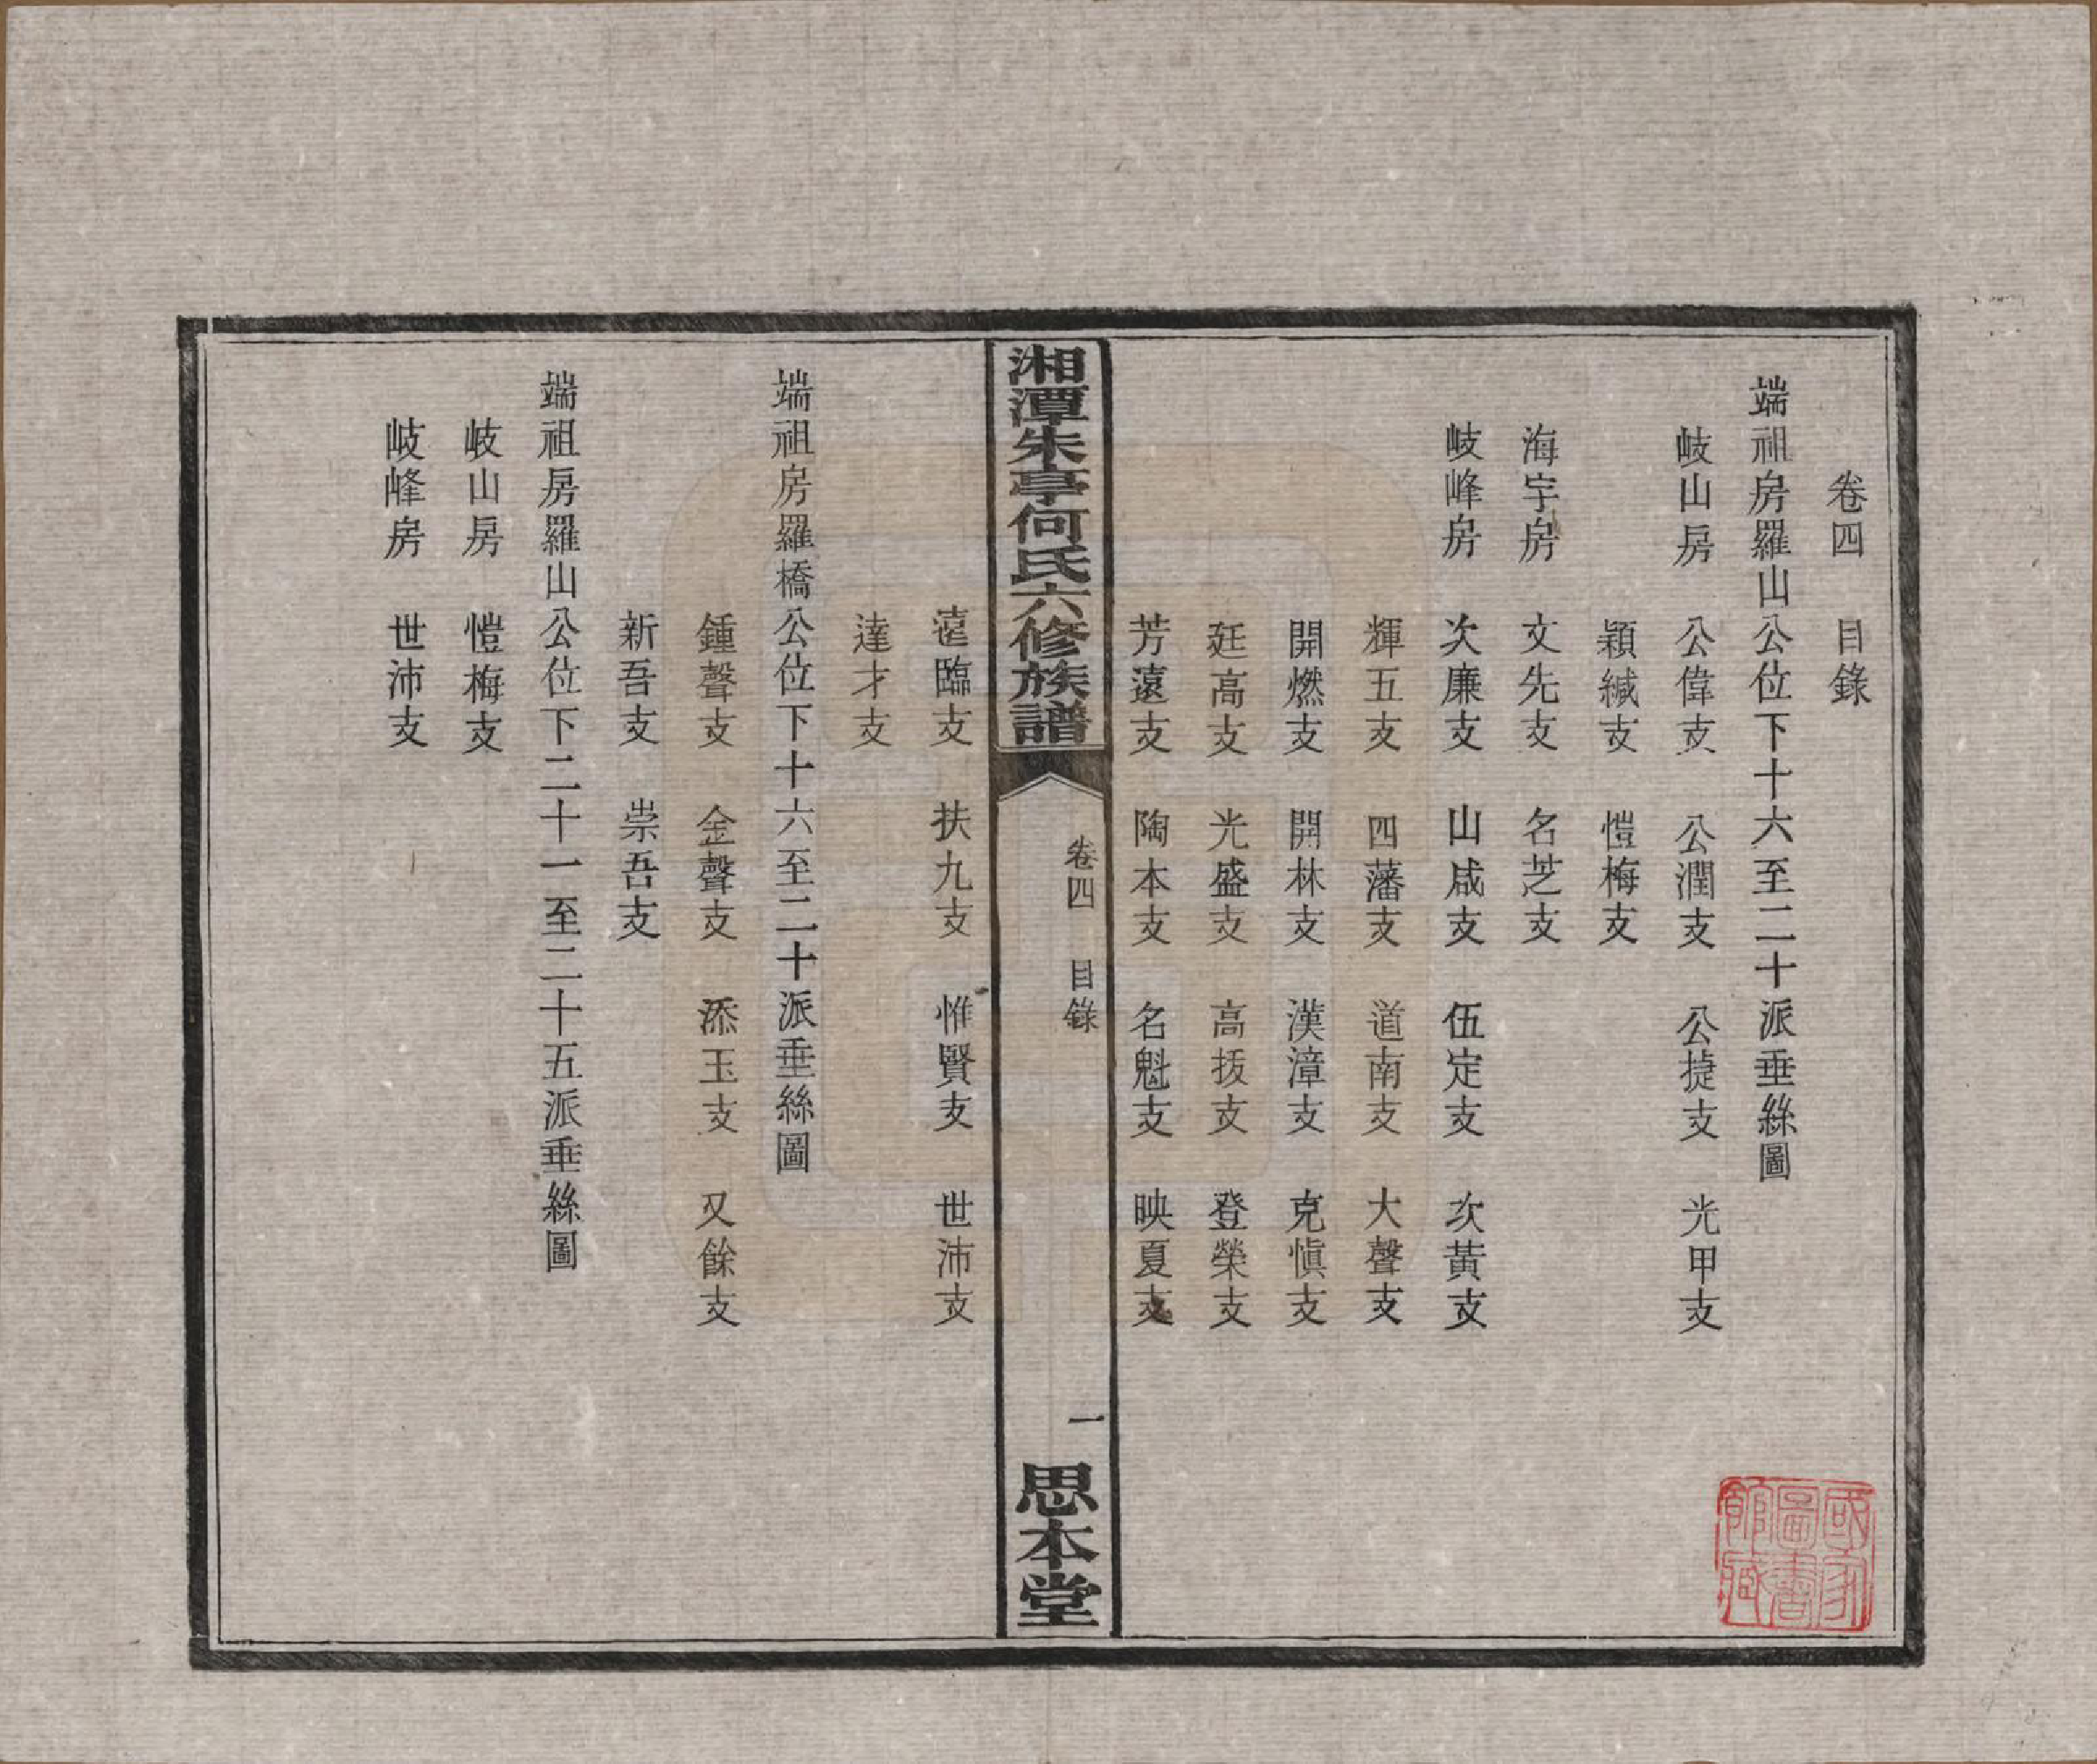 卷四　目錄
端祖房羅山公位下十六至二十派垂絲圖
岐山房　公偉支　公潤支　公捷支　光甲支
穎緘支　愷梅支
海宇房　文先支　名芝支
岐峰房　次廉支　山咸支　伍定支　次黃支
輝五支　四藩支　道南支　大聲支
開燃支　開林支　漢漳支　克愼支
廷高支　光盛支　高拔支　登榮支
芳遠支　陶本支　名魁支　映夏支
湘潭朱亭何氏六修族譜
卷四　目錄
一
思本堂
遠臨支　扶九支　惟賢支　世沛支
達才支
端祖房羅橋公位下十六至二十派垂絲圖
鍾聲支　金聲支　添玉支　又餘支
新吾支　崇吾支
端祖房羅山公位下二十一至二十五派垂絲圖
岐山房　愷梅支
岐峰房　世沛支
國家圖書館藏